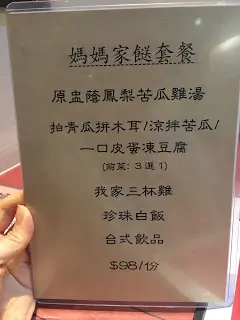 媽媽家餸套餐
原盅蔭鳳梨苦瓜雞湯
拍青瓜拼木耳/涼拌苦瓜/
一口皮蛋凍豆腐
(前菜: 3 選 1)
我家三杯雞
珍珠白飯
台式飲品
$98/份